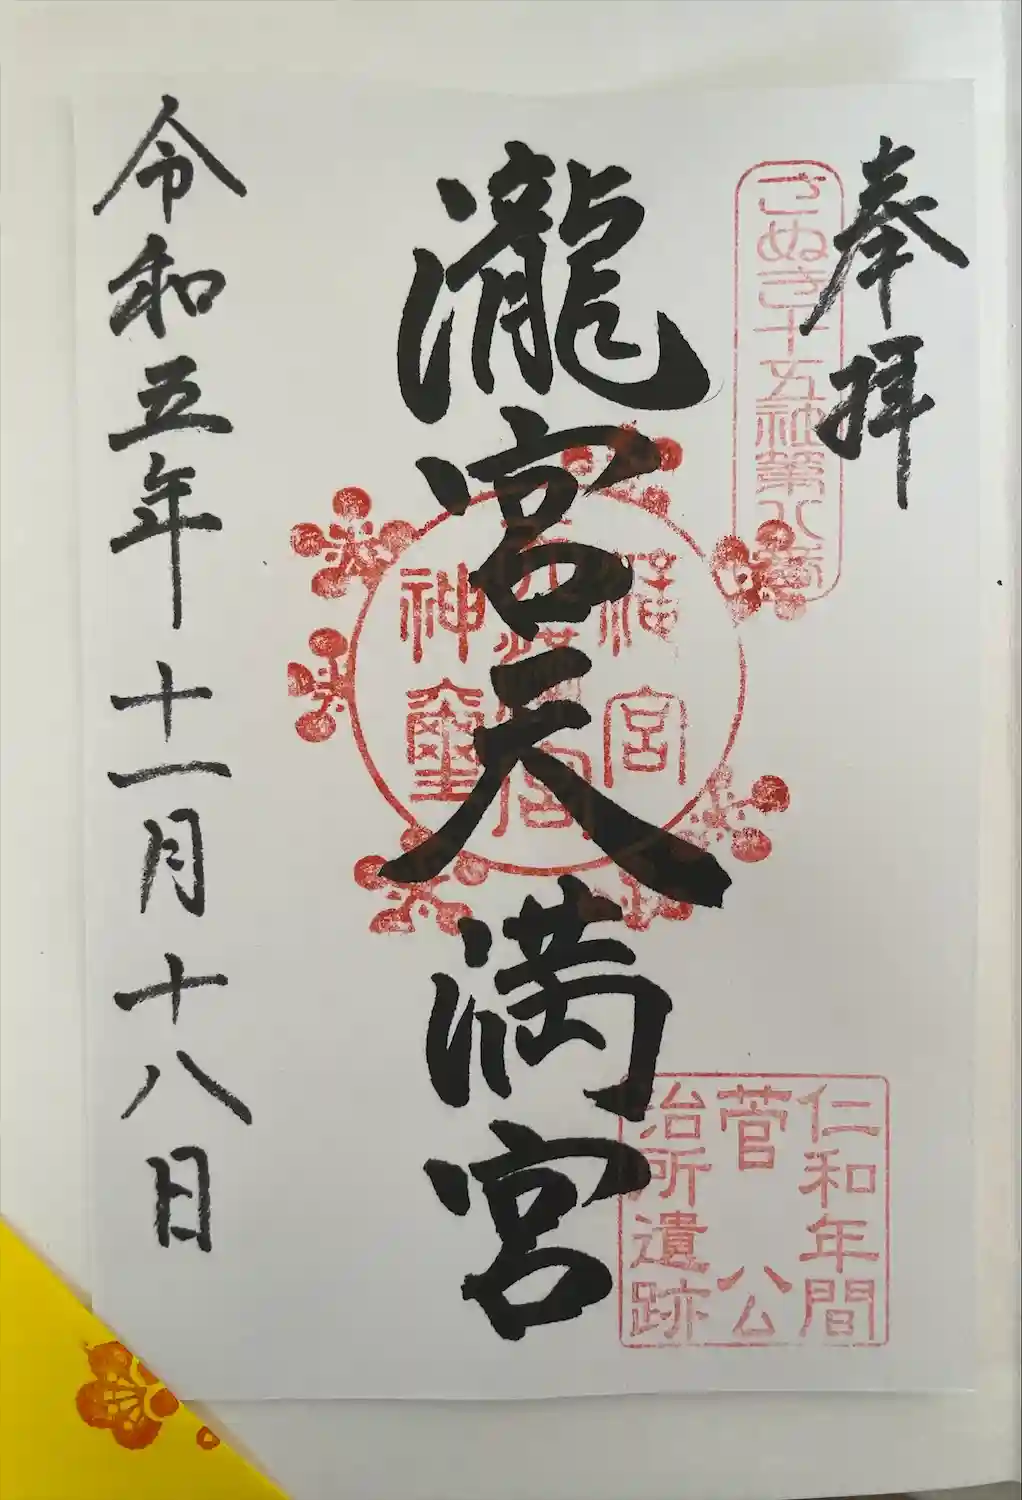 奉拝
さぬき十五社第八番
瀧宮天満宮
仁和年間
菅公
治所遺跡
令和五年十一月十八日